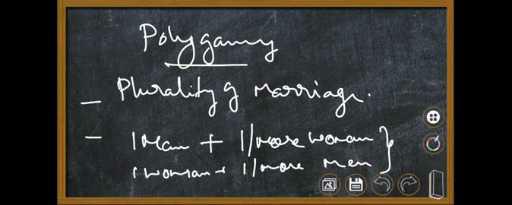 Polygamy
- Plurality of Marriage.
- 1 Man + 1/more woman }
1 woman + 1/more men }